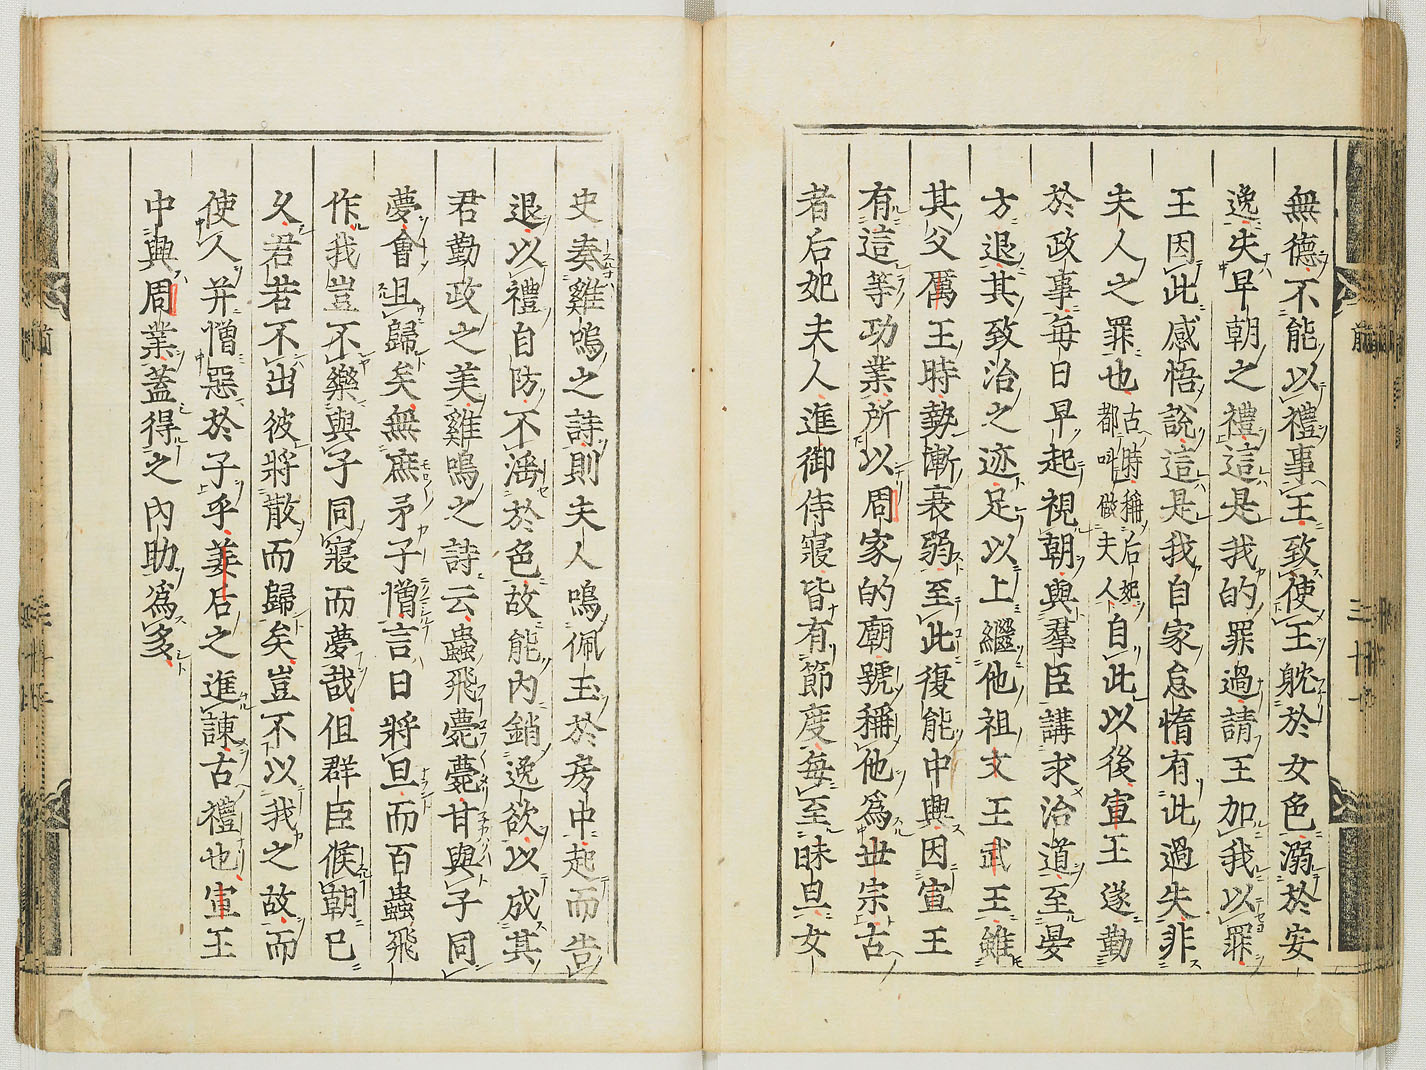 無德不能以禮事王致使王躭於女色溺於安
逸失早朝之禮這是我的罪過請王加我以罪
王因此感悟說這是我自家怠惰有此過失非
夫人之罪也古時稱后妃都呌做夫人自此以後宣王遂勤
於政事每日早起視朝與羣臣講求治道至晏
方退其致治之迹足以上繼他祖文王武王雖
其父厲王時勢漸衰弱至此復能中興因宣王
有這等功業所以周家的廟號稱他爲世宗古
者后妃夫人進御侍寢皆有節度每至昧旦女
史奏雞鳴之詩則夫人鳴佩玉於房中起而告
退以禮自防不滛於色故能內銷逸欲以成其
君勤政之美雞鳴之詩云蟲飛薨薨甘與子同
夢會且歸矣無庶矛子憎言日將旦而百蟲飛
作我豈不樂與子同寢而夢哉但群臣候朝已
久君若不出彼將散而歸矣豈不以我之故而
使人并憎惡於子乎姜后之進諫古禮也宣王
中興周業蓋得之內助爲多